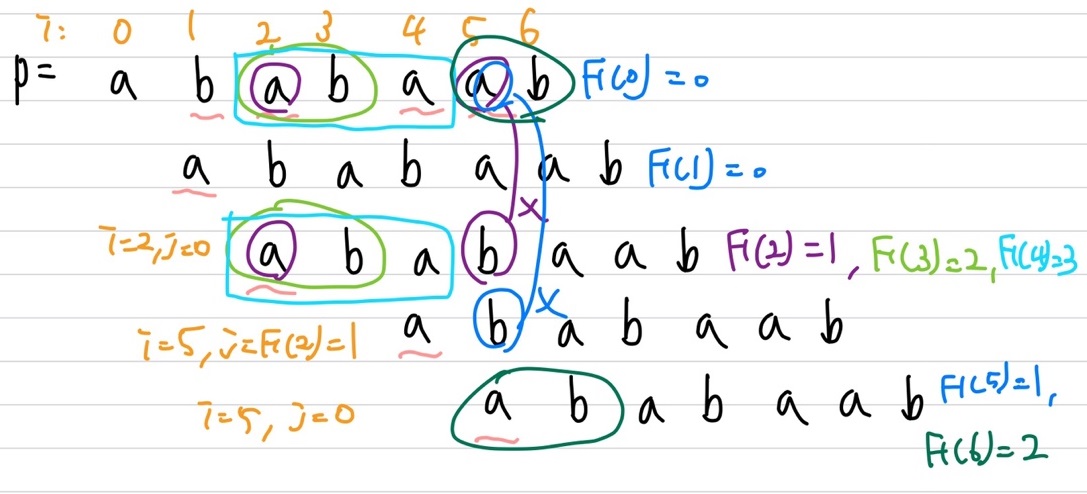 i: 0 1 2 3 4 5 6
P= a b a b a a b F(0)=0
a b a b a a b F(1)=0
i=2, j=0 a b a b a a b F(2)=1, F(3)=2, F(4)=3
x
i=5, j=F(2)=1 a b a b a a b
x
i=5, j=0 a b a b a a b F(5)=1,
F(6)=2